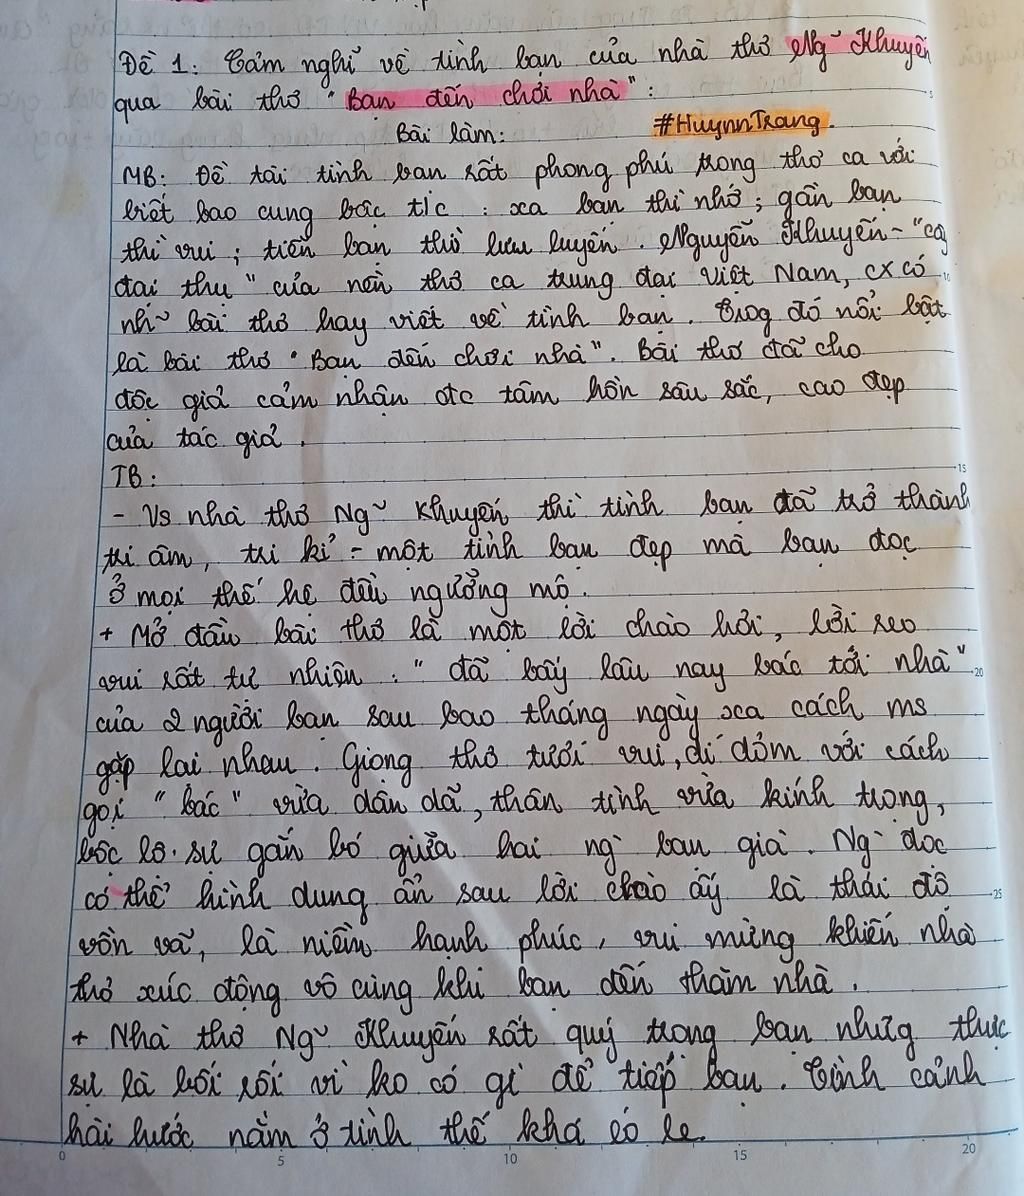 Đề 1: Cảm nghĩ về tình bạn của nhà thơ Ng~ Khuyến
qua bài thơ "Bạn đến chơi nhà":
Bài làm: #HuynnTrang.
MB: Đề tài tình bạn rất phong phú trong thơ ca với
biết bao cung bậc t/c : xa bạn thì nhớ; gần bạn
thì vui; tiễn bạn thì lưu luyến. Nguyễn Khuyến - "cây
đại thụ" của nền thơ ca trung đại Việt Nam, cx có
nh~ bài thơ hay viết về tình bạn. Trog đó nổi bật
là bài thơ "Bạn đến chơi nhà". Bài thơ đã cho
độc giả cảm nhận đc tâm hồn sâu sắc, cao đẹp
của tác giả.
TB:
- Vs nhà thơ Ng~ Khuyến thì tình bạn đã trở thành
tri âm, tri kỉ - một tình bạn đẹp mà bạn đọc
ở mọi thế hệ đều ngưỡng mộ.
+ Mở đầu bài thơ là một lời chào hỏi, lời reo
vui rất tự nhiên: "đã bấy lâu nay bác tới nhà"
của 2 người bạn sau bao tháng ngày xa cách ms
gặp lại nhau. Giọng thơ tươi vui, dí dỏm với cách
gọi "bác" vừa dân dã, thân tình vừa kính trọng,
bộc lộ sự gắn bó giữa hai ng` bạn già. Ng` đọc
có thể hình dung ẩn sau lời chào ấy là thái độ
vồn vã, là niềm hạnh phúc, vui mừng khiến nhà
thơ xúc động vô cùng khi bạn đến thăm nhà.
+ Nhà thơ Ng~ Khuyến rất quý trọng bạn nhưg thực
sự là bối rối vì ko có gì để tiếp bạn. Tình cảnh
hài hước nằm ở tình thế khá éo le.
0 5 10 15 20